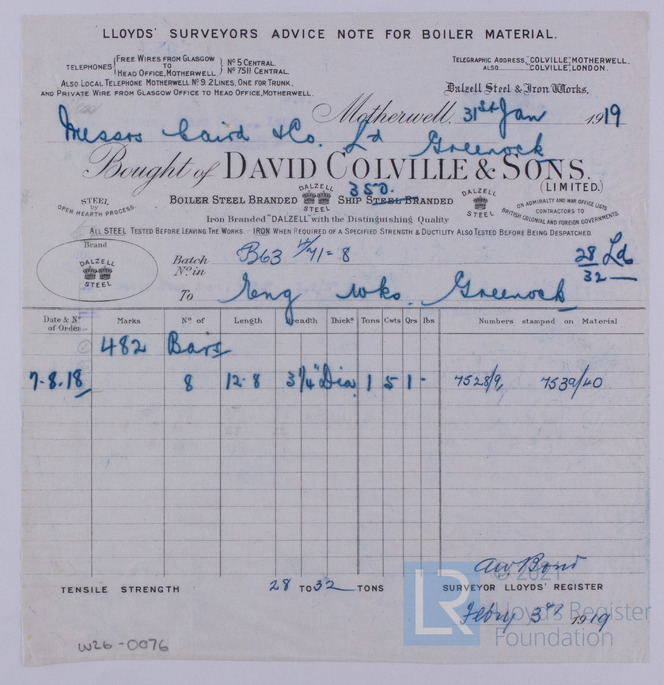 LLOYDS' SURVEYORS ADVICE NOTE FOR BOILER MATERIAL.
TELEPHONES { FREE WIRES FROM GLASGOW TO HEAD OFFICE, MOTHERWELL. } Nº 5 CENTRAL. Nº 7511 CENTRAL.
ALSO LOCAL TELEPHONE MOTHERWELL Nº 9. 2 LINES, ONE FOR TRUNK,
AND PRIVATE WIRE FROM GLASGOW OFFICE TO HEAD OFFICE, MOTHERWELL.
TELEGRAPHIC ADDRESS, "COLVILLE", MOTHERWELL.
ALSO "COLVILLE", LONDON.
Dalzell Steel & Iron Works,
Motherwell, 31st Jan 1919
Messrs Caird & Co. Ld Greenock
Bought of DAVID COLVILLE & SONS.
(LIMITED.)
STEEL by OPEN HEARTH PROCESS.
BOILER STEEL BRANDED DALZELL STEEL 350. SHIP STEEL BRANDED DALZELL STEEL
ON ADMIRALTY AND WAR OFFICE LISTS
CONTRACTORS TO
BRITISH COLONIAL AND FOREIGN GOVERNMENTS.
Iron Branded "DALZELL" with the Distinguishing Quality
ALL STEEL TESTED BEFORE LEAVING THE WORKS. - IRON WHEN REQUIRED OF A SPECIFIED STRENGTH & DUCTILITY ALSO TESTED BEFORE BEING DESPATCHED.
Brand
DALZELL STEEL
Batch Nº in B63 = 8 28/32 Ld
To Eng Wks. Greenock
Date & Nº of Order Marks Nº of Length Breadth Thickˢ Tons Cwts Qrs lbs Numbers stamped on Material
482 Bars
7-8.18 8 12-8 3¼" Dia 1 5 1 - 7528/9, 7539/40
AW Bond
TENSILE STRENGTH 28 TO 32 TONS SURVEYOR LLOYDS' REGISTER
Febry 3rd 1919
W26-0076
© 2021
LR Lloyd's Register
Foundation